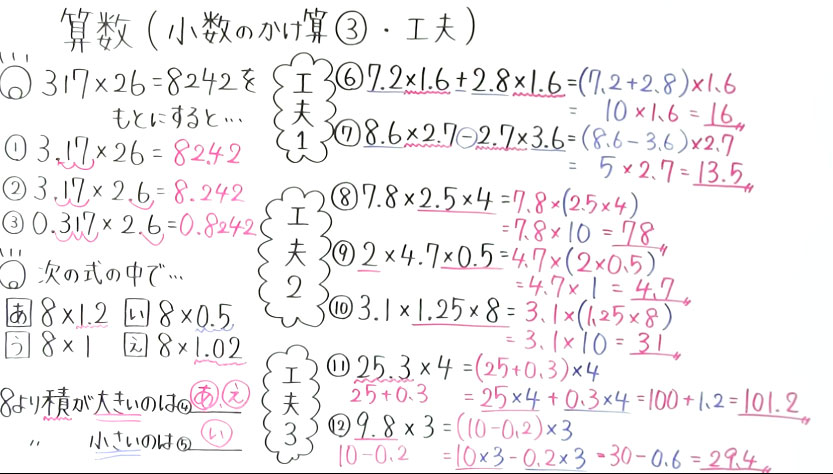 算数（小数のかけ算③・工夫）
317×26=8242を
もとにすると…
① 3.17×26=82.42
② 3.17×2.6=8.242
③ 0.317×2.6=0.8242
次の式の中で…
あ 8×1.2 い 8×0.5
う 8×1 え 8×1.02
8より積が大きいのは④ あ え
〃 小さいのは⑤ い
工夫1
⑥ 7.2×1.6+2.8×1.6=(7.2+2.8)×1.6
= 10×1.6=16
⑦ 8.6×2.7-2.7×3.6=(8.6-3.6)×2.7
= 5×2.7=13.5
工夫2
⑧ 7.8×2.5×4=7.8×(2.5×4)
=7.8×10=78
⑨ 2×4.7×0.5=4.7×(2×0.5)
=4.7×1=4.7
⑩ 3.1×1.25×8=3.1×(1.25×8)
=3.1×10=31
工夫3
⑪ 25.3×4=(25+0.3)×4
25+0.3 =25×4+0.3×4=100+1.2=101.2
⑫ 9.8×3=(10-0.2)×3
10-0.2 =10×3-0.2×3=30-0.6=29.4